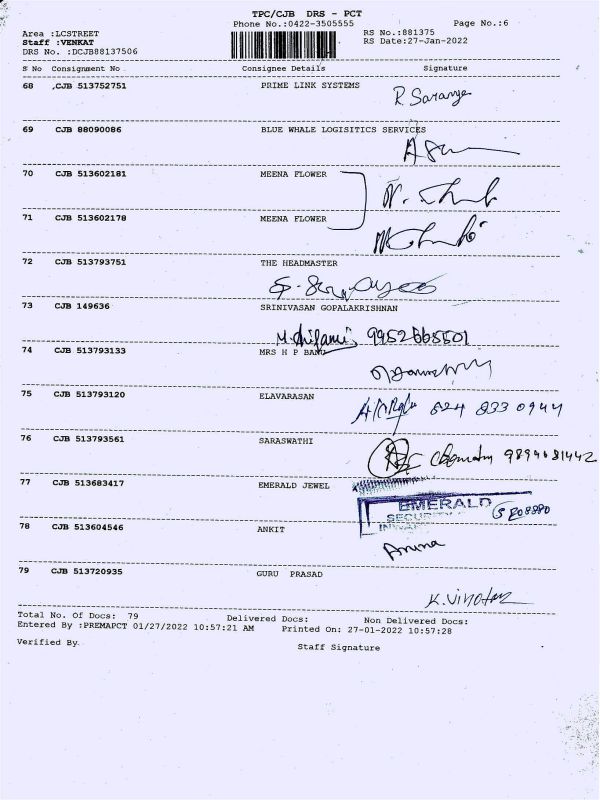 TPC/CJB DRS - PCT
Phone No.:0422-3505555 Page No.:6
Area :LCSTREET RS No.:881375
Staff :VENKAT RS Date:27-Jan-2022
DRS No. :DCJB88137506
S No Consignment No Consignee Details Signature
68 CJB 513752751 PRIME LINK SYSTEMS
R. Saranya
69 CJB 88090086 BLUE WHALE LOGISITICS SERVICES
70 CJB 513602181 MEENA FLOWER
71 CJB 513602178 MEENA FLOWER
72 CJB 513793751 THE HEADMASTER
73 CJB 149636 SRINIVASAN GOPALAKRISHNAN
74 CJB 513793133 MRS H P
75 CJB 513793120 ELAVARASAN
824 833 0944
76 CJB 513793561 SARASWATHI
77 CJB 513683417 EMERALD JEWEL
EMERALD
78 CJB 513604546 ANKIT
79 CJB 513720935 GURU PRASAD
Total No. Of Docs: 79 Delivered Docs: Non Delivered Docs:
Entered by :PREMAPCT 01/27/2022 10:57:21 AM Printed On: 27-01-2022 10:57:28
Verified By Staff Signature